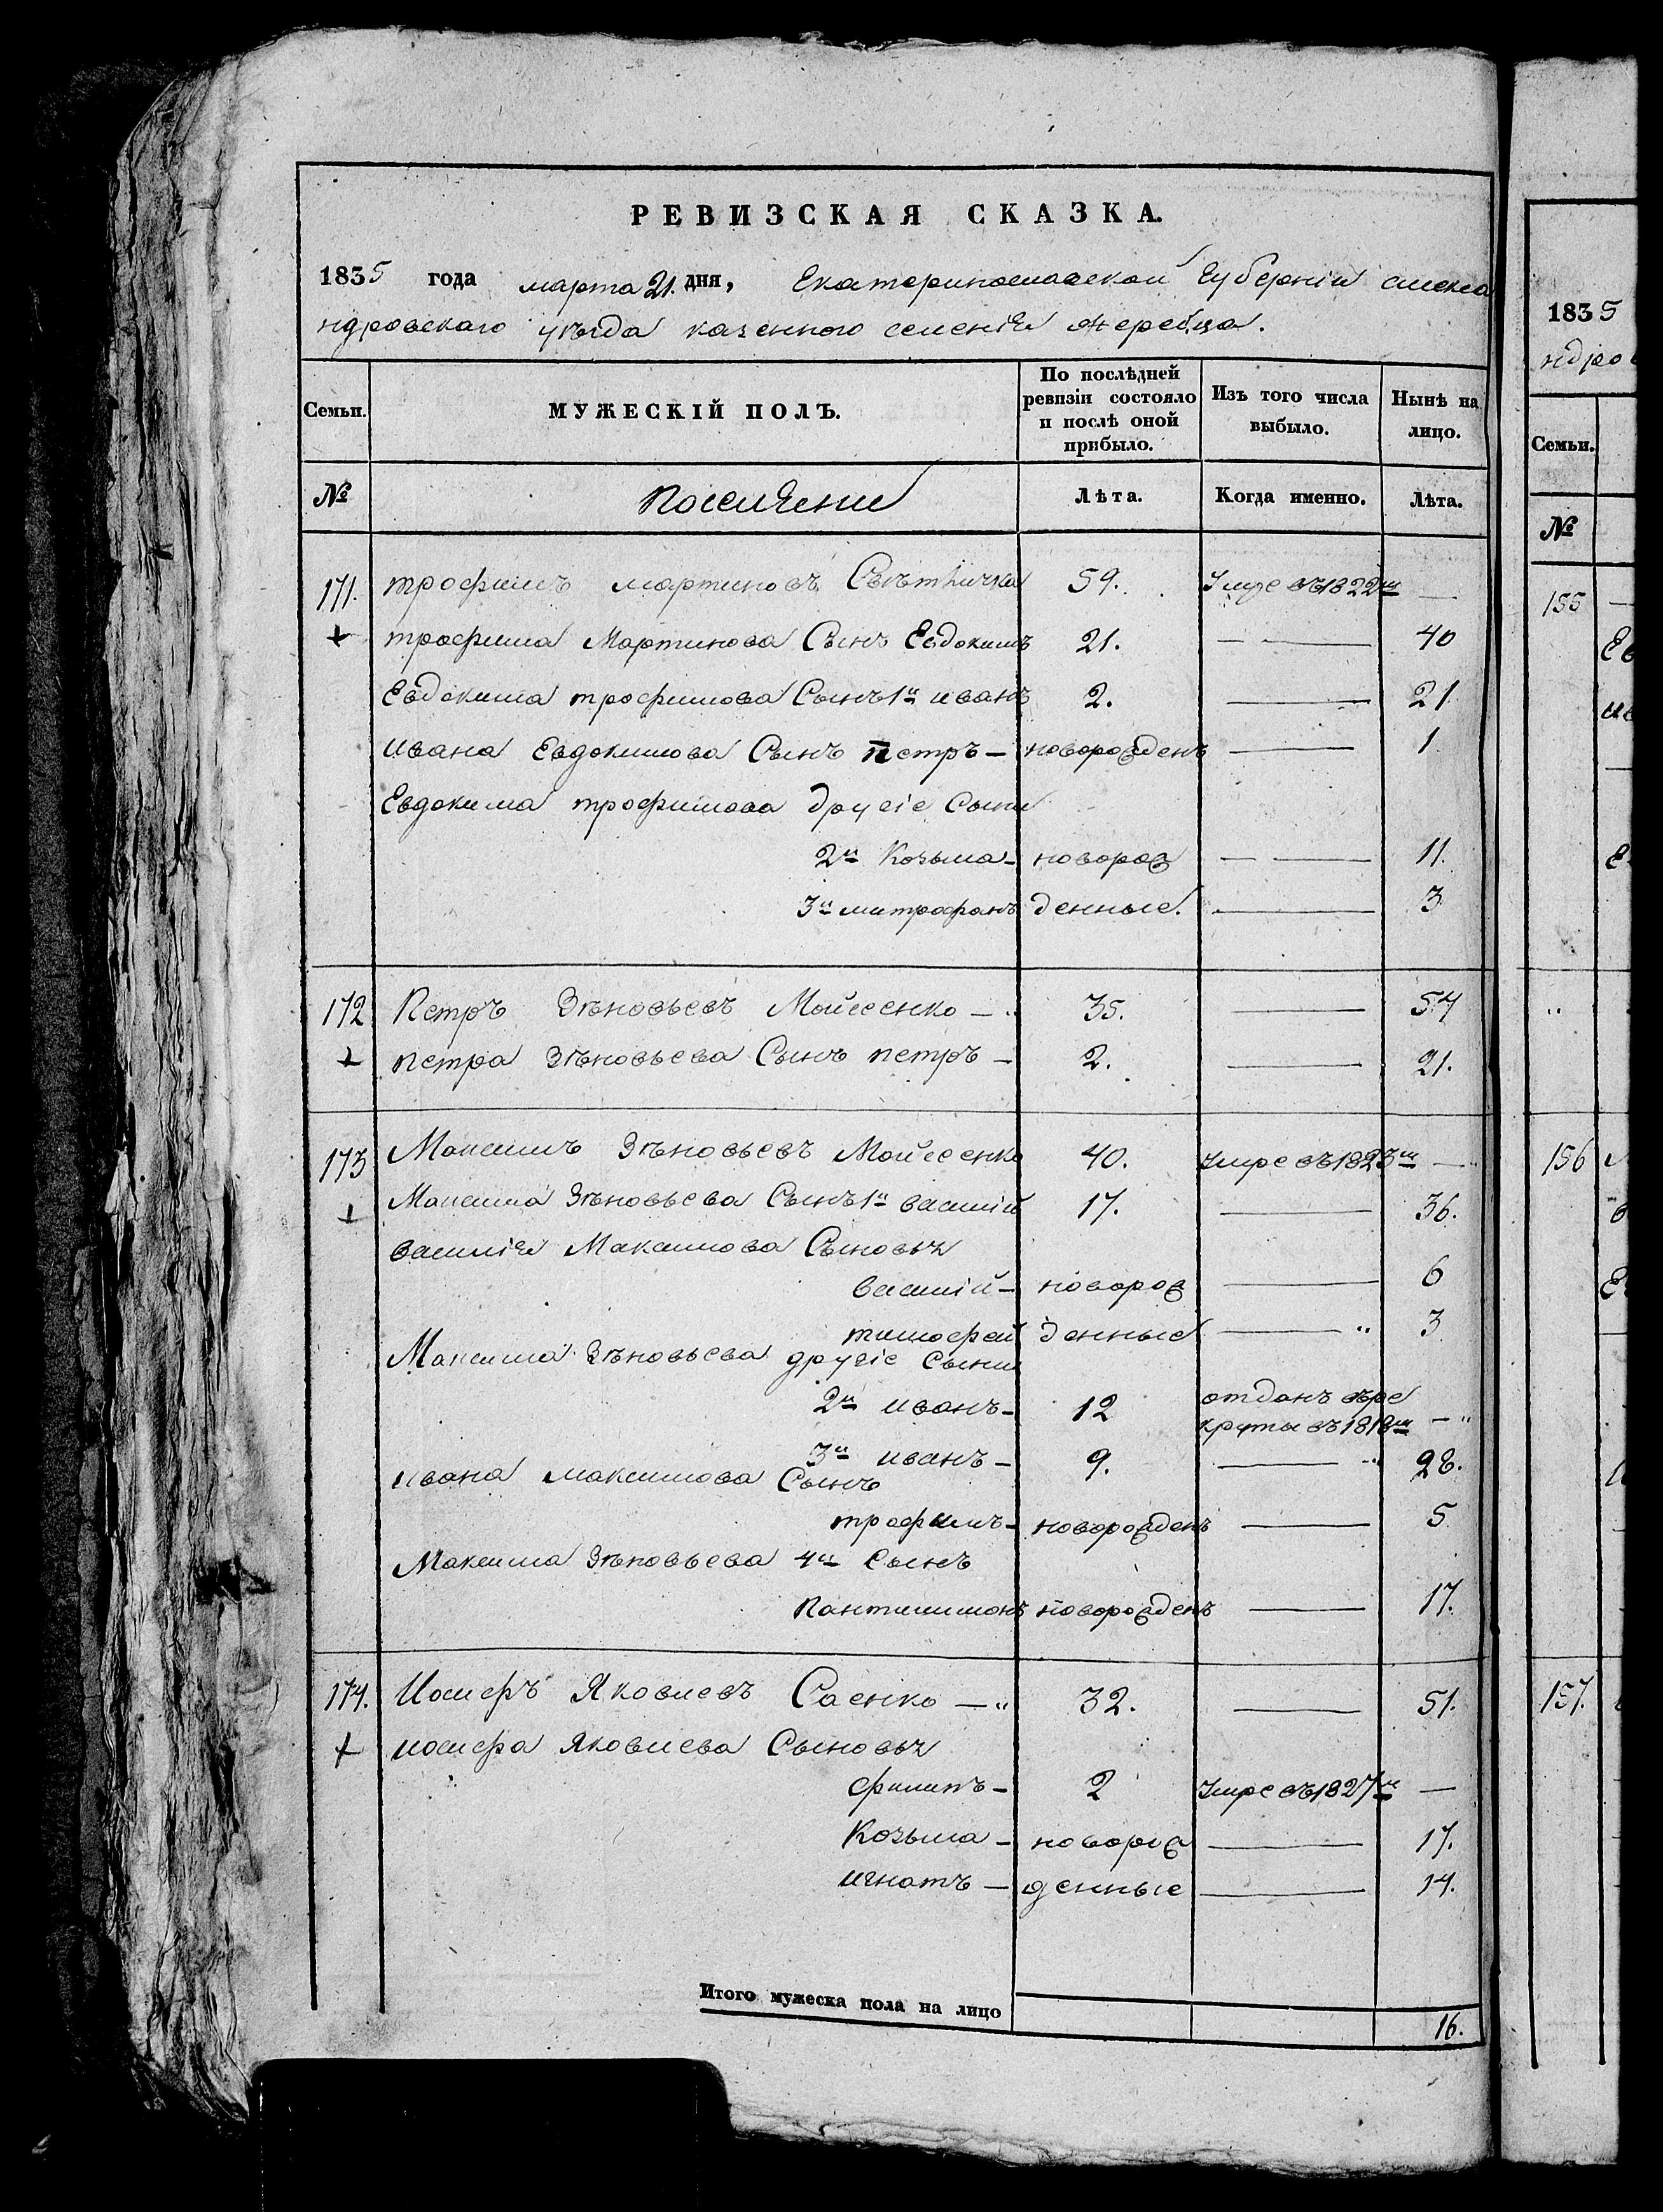 РЕВИЗСКАЯ СКАЗКА.
1835 года марта 21. дня, Екатеринославской губерніи алекса
ндровскаго уѣзда казенного селенія жеребца.
Семьи. МУЖЕСКІЙ ПОЛЪ. По послѣдней ревизіи состояло и послѣ оной прибыло. Изъ того числа выбыло. Нынѣ на лицо.
№ Поселяне Лѣта. Когда именно. Лѣта.
171. трофимъ мартиновъ 59. Умре въ 1822м —
+ трофима Мартинова Сынъ Евдокимъ 21. — 40
Евдокима трофимова Сынъ 1й иванъ 2. — 21
ивана Евдокимова Сынъ Петръ — новорожденъ — 1
Евдокима трофимова другіе Сыни
2й Козьма — новорож — 11.
3й митрофанъ денные. — 3
172 Петръ Зѣновьевъ Мойсеенко — 35. — 54
+ петра Зѣновьева Сынъ петръ — 2. — 21.
173 Максимъ Зѣновьевъ Мойсеенко 40. Умре въ 1823м —
+ Максима Зѣновьева Сынъ 1й василій 17. — 36.
василія Максимова Сыновья
василій — новорож — 6
тимофей денные — 3
Максима Зѣновьева другіе Сыни
2й иванъ — 12 отданъ въ ре
круты въ 1818м —
3й иванъ — 9. — 28.
ивана максимова Сынъ
трофимъ — новорожденъ — 5
Максима Зѣновьева 4й Сынъ
Пантилимонъ новорожденъ — 17.
174. Иосифъ Яковлевъ Саенко — 32. — 51.
+ иосифа яковлева Сыновья
филипъ — 2 Умре въ 1827м —
Козьма — новорож — 17.
игнатъ — денные — 14.
Итого мужеска пола на лицо 16.
1835
ндров
Семьи.
№
155 —
Ев
156
157.